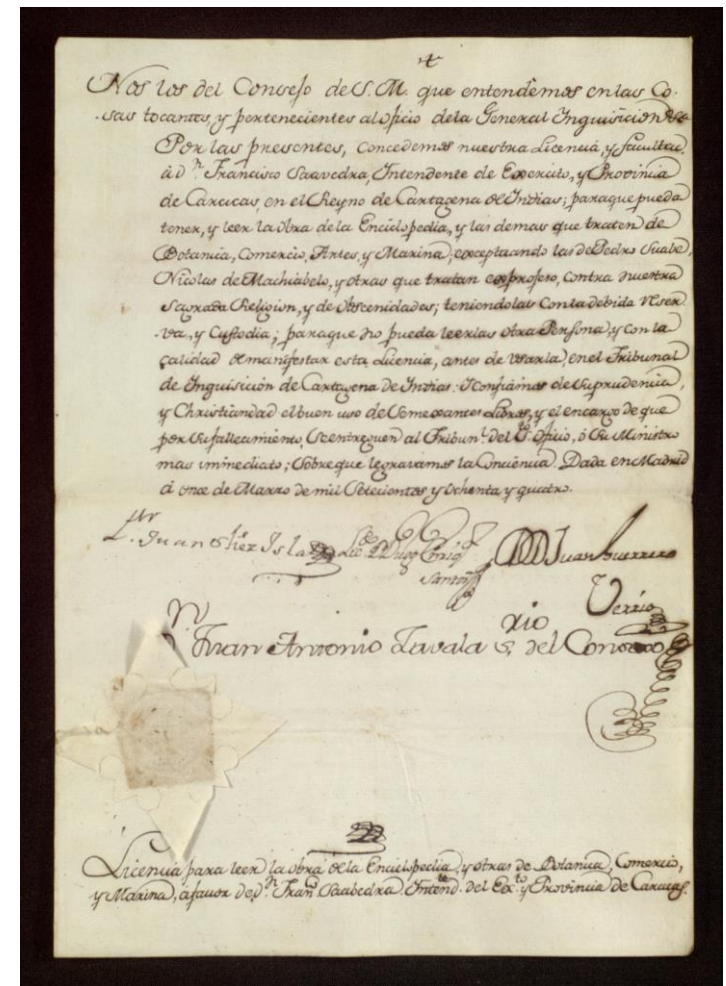 Nos los del Consejo de S. M. que entendemos en las Co-
-sas tocantes, y pertenecientes al oficio de la General Inquisicion &a
Por las presentes, concedemos nuestra Licencia, y facultad,
á Dn. Francisco Saavedra, Intendente de Exercito, y Provincia
de Caracas, en el Reyno de Cartagena de Indias; para que pueda
tener, y leer la obra de la Enciclopedia, y las demas que traten de
Botanica, Comercio, Artes, y Marina; exceptuando las de Pedro Suabe,
Nicolas de Machiabelo, y otras que tratan exprofeso, contra nuestra
Sagrada Religion, y de obscenidades; teniendolas con la debida reser
-va, y Custodia; para que no pueda leerlas otra Persona, y con la
calidad de manifestar esta Licencia, antes de usarla, en el Tribunal
de Inquisicion de Cartagena de Indias. Y confiamos de su prudencia,
y Christiandad el buen uso de semexantes Libros, y el encargo de que
por su fallecimiento, se entreguen al Tribunl. del Sto. Oficio, ó su Ministro
mas inmediato; sobre que le gravamos la Conciencia. Dada en Madrid
á once de Marzo de mil setecientos y ochenta y quatro.
Juan Isla Juan Guerrero
Berrio
Dn. Juan Antonio Zavala Srio. del Consexo
Licencia para leer la obra de la Enciclopedia, y otras de Botanica, Comercio,
y Marina, a favor de Dn. Franco. Saabedra Intendte. del Exto. y Provincia de Caracas.